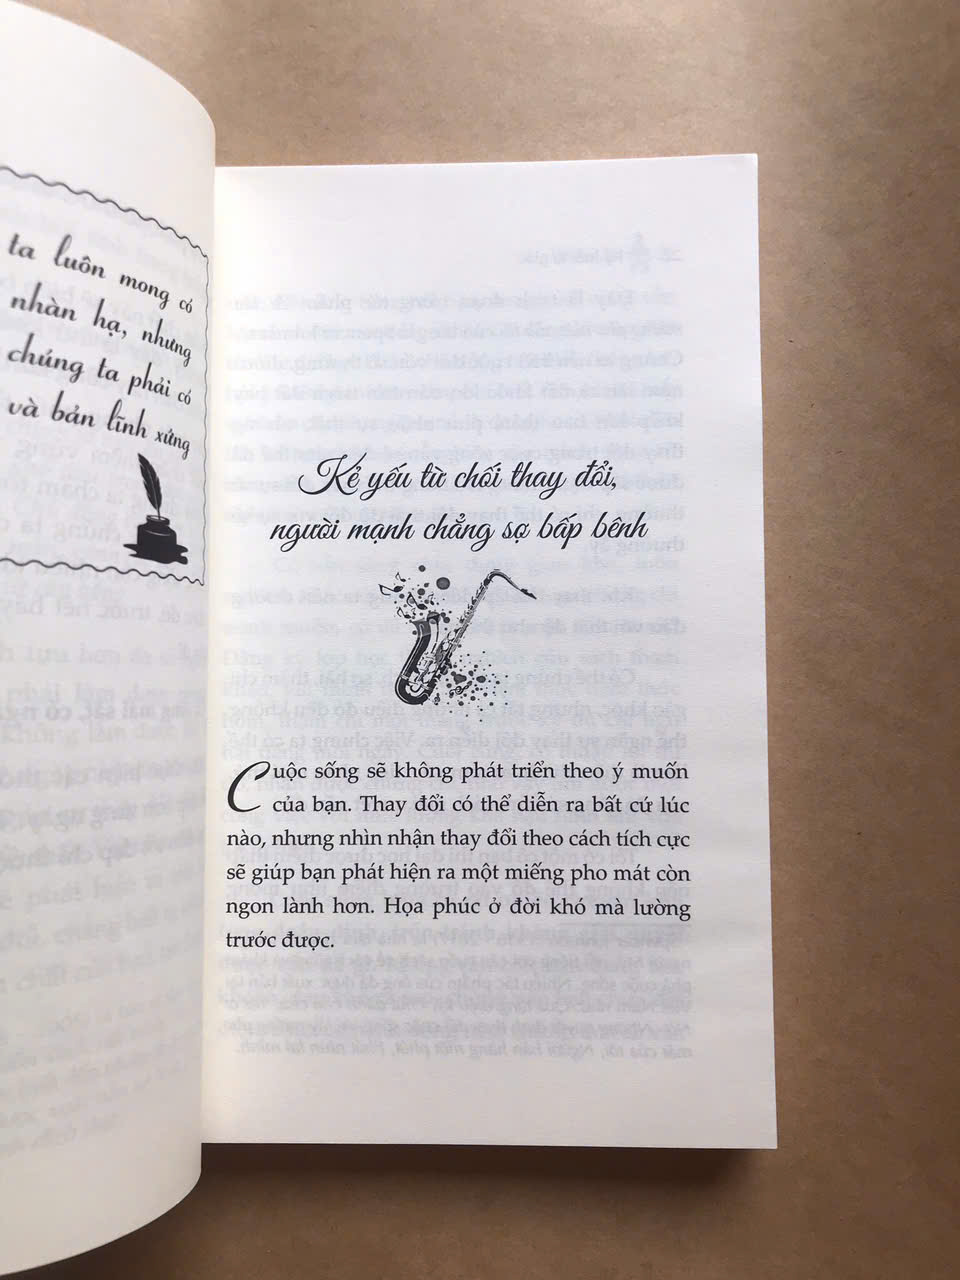 ta luôn mong có
nhàn hạ, nhưng
chúng ta phải có
và bản lĩnh xứng
Kẻ yếu từ chối thay đổi,
người mạnh chẳng sợ bấp bênh
Cuộc sống sẽ không phát triển theo ý muốn
của bạn. Thay đổi có thể diễn ra bất cứ lúc
nào, nhưng nhìn nhận thay đổi theo cách tích cực
sẽ giúp bạn phát hiện ra một miếng pho mát còn
ngon lành hơn. Họa phúc ở đời khó mà lường
trước được.